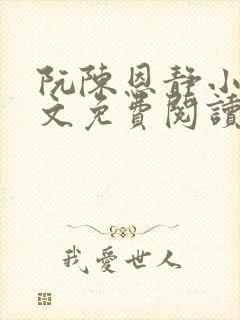 阮陳恩靜小
文免費閱讀
我愛世人